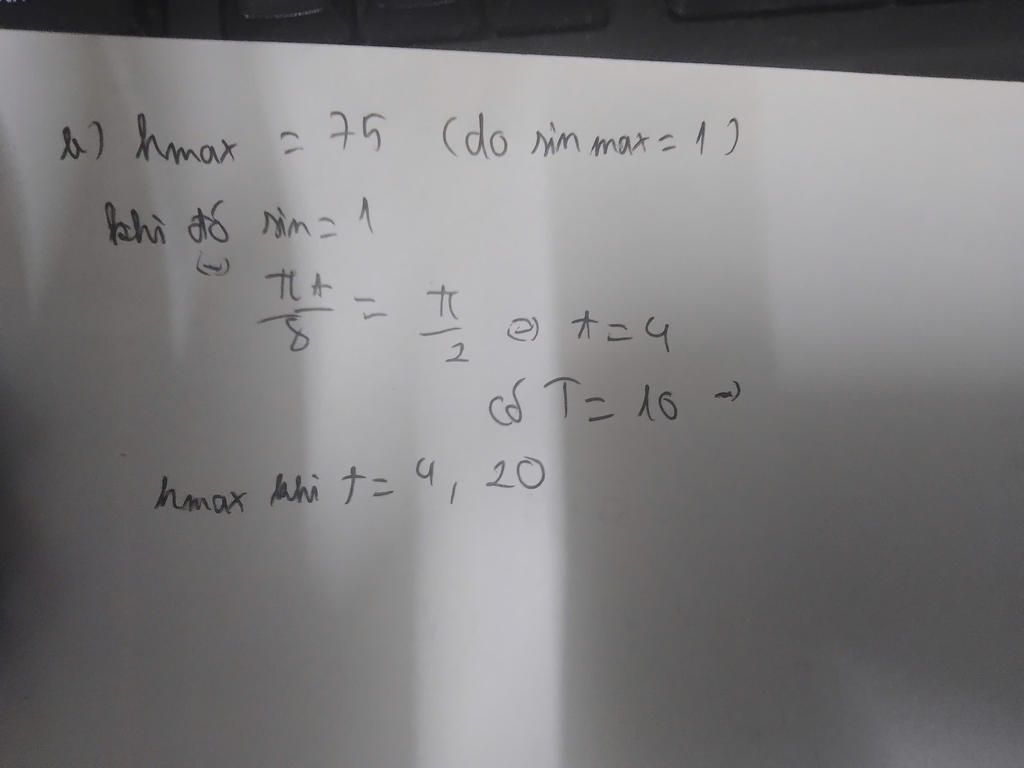 b) hmax = 75 (do sin max = 1)
khi đó sin = 1
(=) πt/8 = π/2 (=) t = 4
có T = 16 →
hmax khi t = 4, 20